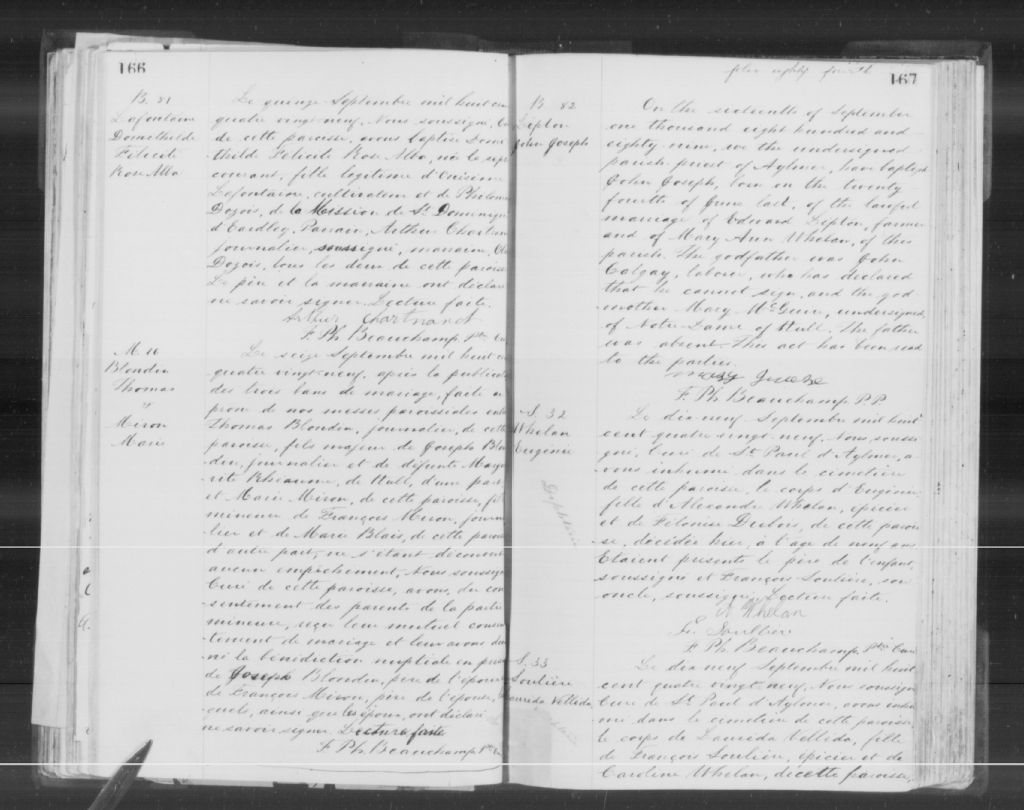 166
B. 81
Lafontaine
Domithilde
Félicité
Rose Alba
Le quinze Septembre mil huit cent
quatre vingt-neuf, Nous soussigné, Curé
de cette paroisse, avons baptisé Domi
thilde Félicité Rose Alba, née le sept
courant, fille légitime d'Onésime
Lafontaine, cultivateur et de Philomène
Dozois, de la Mission de St Dominique
d'Eardley. Parrain, Arthur Chartrand
journalier, soussigné, marraine,
Dozois, tous les deux de cette paroisse
Le père et la marraine ont déclaré
ne savoir signer. Lecture faite.
Arthur Chartrand
F. Ph. Beauchamp Ptre Curé
M. 16
Blondin
Thomas
&
Miron
Marie
Le seize Septembre mil huit cent
quatre vingt-neuf, après la publication
des trois bans de mariage, faite au
prone de nos messes paroissiales entre
Thomas Blondin, journalier, de cette
paroisse, fils majeur de Joseph Blon
din, journalier et de défunte Margue
rite Rhéaume, de Hull, d'une part
et Marie Miron, de cette paroisse, fille
mineure de François Miron, journa
lier et de Marie Blais, de cette paroisse
d'autre part, ne s'étant découvert
aucun empêchement, Nous soussigné
Curé de cette paroisse, avons, du con
sentement des parents de la partie
mineure, reçu leur mutuel consen
tement de mariage et leur avons don
né la bénédiction nuptiale en présence
de Joseph Blondin, père de l'époux
de François Miron, père de l'épouse,
quels, ainsi que les époux, ont déclaré
ne savoir signer. Lecture faite
F. Ph. Beauchamp Ptre Curé
folio eighty fourth
167
B 82
Lipton
John Joseph
On the sixteenth of September
one thousand eight hundred and
eighty-nine, we the undersigned
parish priest of Aylmer, have baptized
John Joseph, born on the twenty
fourth of June last, of the lawful
marriage of Edward Lipton, farmer
and of Mary Ann Whelan, of this
parish. The godfather was John
Calgay, laborer, who has declared
that he cannot sign, and the god
mother Mary McGuire, undersigned,
of Notre-Dame of Hull. The father
was absent. This act has been read
to the parties.
F. Ph. Beauchamp P.P.
S. 32
Whelan
Eugénie
Diphtérie
Le dix neuf Septembre mil huit
cent quatre vingt-neuf, Nous soussi
gné, Curé de St Paul d'Aylmer, a-
vons inhumé dans le cimetière
de cette paroisse, le corps d'Eugénie,
fille d'Alexandre Whelan, épicier
et de Filonise Dubois, de cette parois
se, décédée hier, à l'age de neuf ans
Etaient présents le père de l'enfant,
soussigné et François Soulière, son
oncle, soussigné. Lecture faite.
A Whelan
Fr. Soulière
F. Ph. Beauchamp Ptre Curé
S. 33
Soulière
Laureda Vellida
Le dix neuf Septembre mil huit
cent quatre vingt neuf, Nous soussigné
Curé de St Paul d'Aylmer, avons inhu
mé dans le cimetière de cette paroisse,
le corps de Laureda Vellida, fille
de François Soulière, épicier et de
Caroline Whelan, de cette paroisse,